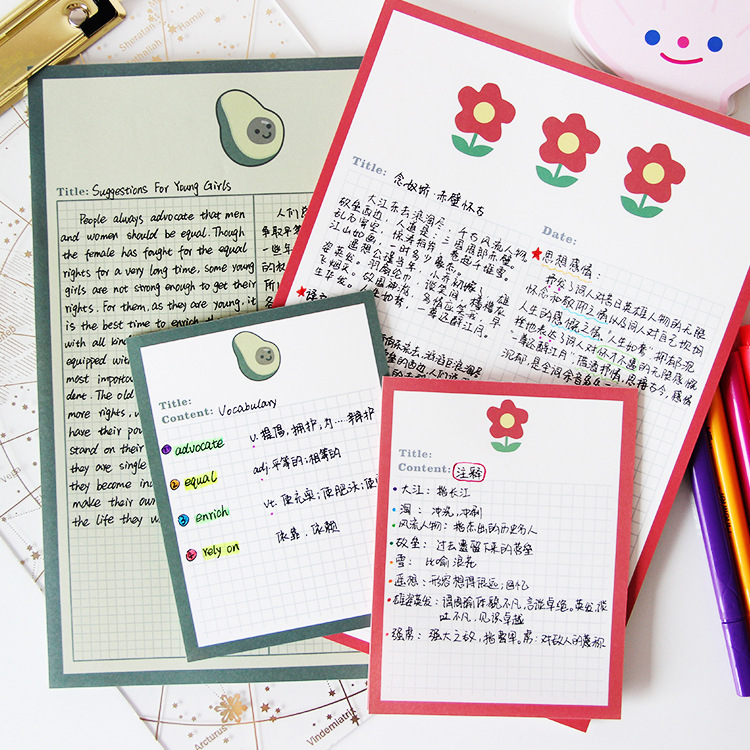 Sheratan
Hamal
Title: Suggestions For Young Girls
People always advocate that men
and women should be equal. Though
the female has fought for the equal
rights for a very long time, some young
girls are not strong enough to get their
rights. For them, as they are young, it
is the best time to enrich
with all kind
equipped with
most importa
dent. The old
more rights,
have their po
stand on their
they are single
they become in
make their own
the life they w
人们总
争取平等
一些年
的权
所
Title: 念奴娇·赤壁怀古
Date:
大江东去,浪淘尽,千古风流人物。
故垒西边,人道是,三国周郎赤壁。
乱石穿空,惊涛拍岸,卷起千堆雪。
江山如画,一时多少豪杰。
遥想公瑾当年,小乔初嫁了,雄
姿英发。羽扇纶巾,谈笑间,樯橹灰
飞烟灭。故国神游,多情应笑我,早
生华发。人生如梦,一尊还酹江月。
思想感情:
抒发了词人对昔日英雄人物的无限
怀念和敬仰之情以及词人对自己坎坷
人生的感慨之情。
Title:
Content: Vocabulary
① advocate v. 提倡,拥护,为……辩护
② equal adj. 平等的;相等的
③ enrich vt. 使充实;使肥沃;使
④ rely on 依靠,依赖
Title:
Content: 注释
大江:指长江
淘:冲洗,冲刷
风流人物:指杰出的历史名人
故垒:过去遗留下来的营垒
雪:比喻浪花
遥想:形容想得很远;回忆
雄姿英发:谓周瑜体貌不凡,言谈卓绝。英发,谈
吐不凡,见识卓越
强虏:强大之敌,指曹军。虏:对敌人的蔑称
Arcturus
Vindemiatrix